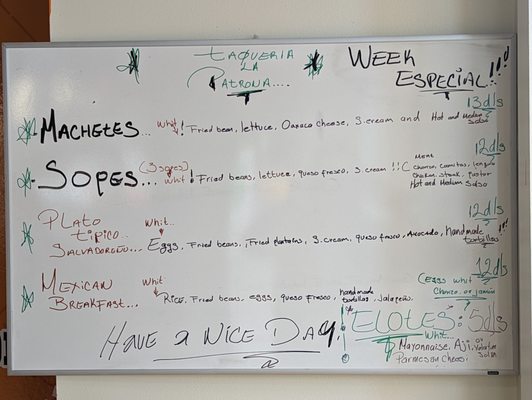 TAQUERIA
LA
PATRONA....
WEEK
ESPECIAL!!!!
13dls
MACHETES... whit ! Fried bean, lettuce, Oaxaca cheese, S.cream and Hot and Medium Salsa
12dls
SOPES... (3 sopes) whit! Fried beans, lettuce, queso fresco, S.cream !! (Meat
Chorizo, carnitas, lengua
chicken, steak, pastor
Hot and Medium Salsa
12dls
PLATO
TIPICO..
SALVADOREÑO... Whit... Eggs, Fried beans, Fried platains, S.cream, queso fresco, Avocado, handmade tortillas
12dls
MEXICAN
BREAKFAST... Whit Rice, Fried beans, eggs, queso fresco, handmade tortillas, Jalapeño.
(eggs whit
Chorizo or jamón
HAVE A NICE DAY!
ELOTES: 5dls
Whit...
Mayonnaise, Aji. or
Parmesan Chees.